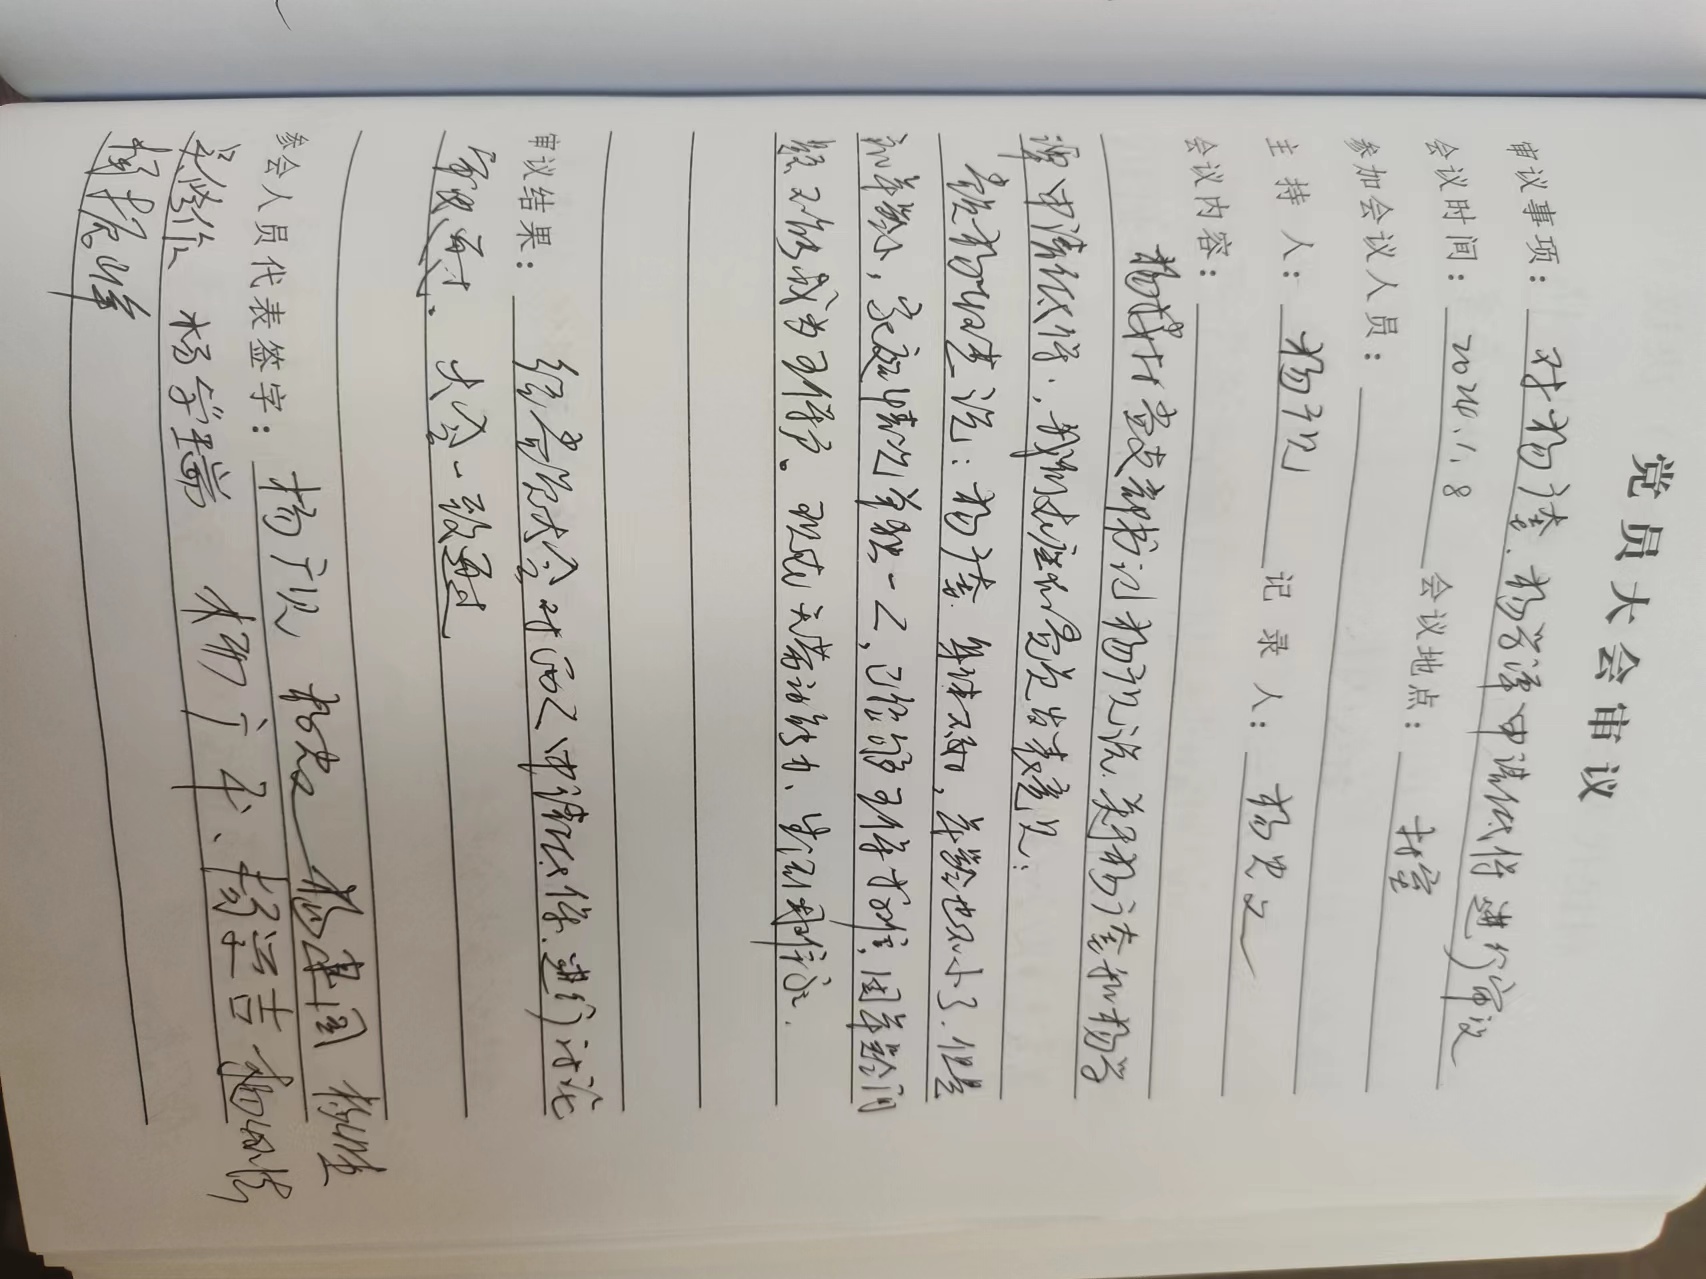 党员大会审议
审议事项：对杨广奎、杨学潭申请低保进行审议
会议时间：2024.1.8 会议地点：村室
参加会议人员：
主持人：杨广见 记录人：杨忠文
会议内容：
杨楼村党支部书记杨广见说.关于杨广奎和杨学
潭申请低保.，我们在座的党员发表意见：
党员杨说：杨广奎.身体不好，年龄也不小了.但是
年龄小，家庭情况单独一人，已经够五保，因年龄问
题不能成为五保户。现在无劳动能力、生活困
审议结果：经党员大会对两人申请低保.进行讨论
审议通过。大会一致通过
参会人员代表签字：杨广见 杨忠文 杨建国 杨
吴 杨学瑞 杨广平、杨学吉 杨
杨振峰